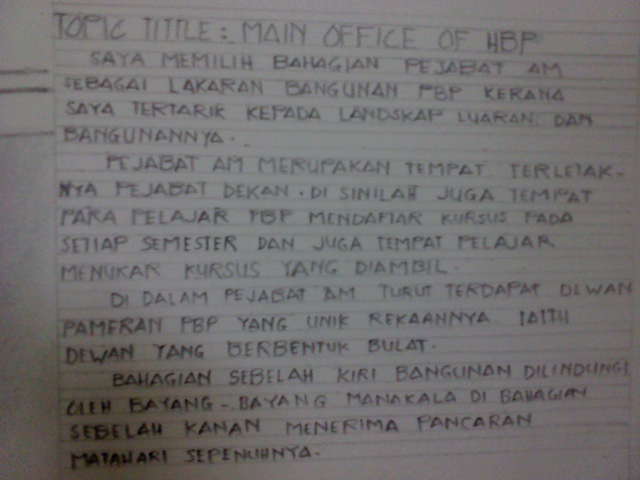 TOPIC TITTLE : MAIN OFFICE OF HBP
SAYA MEMILIH BAHAGIAN PEJABAT AM
SEBAGAI LAKARAN BANGUNAN PBP KERANA
SAYA TERTARIK KEPADA LANDSKAP LUARAN DAN
BANGUNANNYA.
PEJABAT AM MERUPAKAN TEMPAT TERLETAK-
NYA PEJABAT DEKAN. DI SINILAH JUGA TEMPAT
PARA PELAJAR PBP MENDAFTAR KURSUS PADA
SETIAP SEMESTER DAN JUGA TEMPAT PELAJAR
MENUKAR KURSUS YANG DIAMBIL.
DI DALAM PEJABAT AM TURUT TERDAPAT DEWAN
PAMERAN PBP YANG UNIK REKAANNYA IAITU
DEWAN YANG BERBENTUK BULAT.
BAHAGIAN SEBELAH KIRI BANGUNAN DILINDUNGI
OLEH BAYANG-BAYANG MANAKALA DI BAHAGIAN
SEBELAH KANAN MENERIMA PANCARAN
MATAHARI SEPENUHNYA.